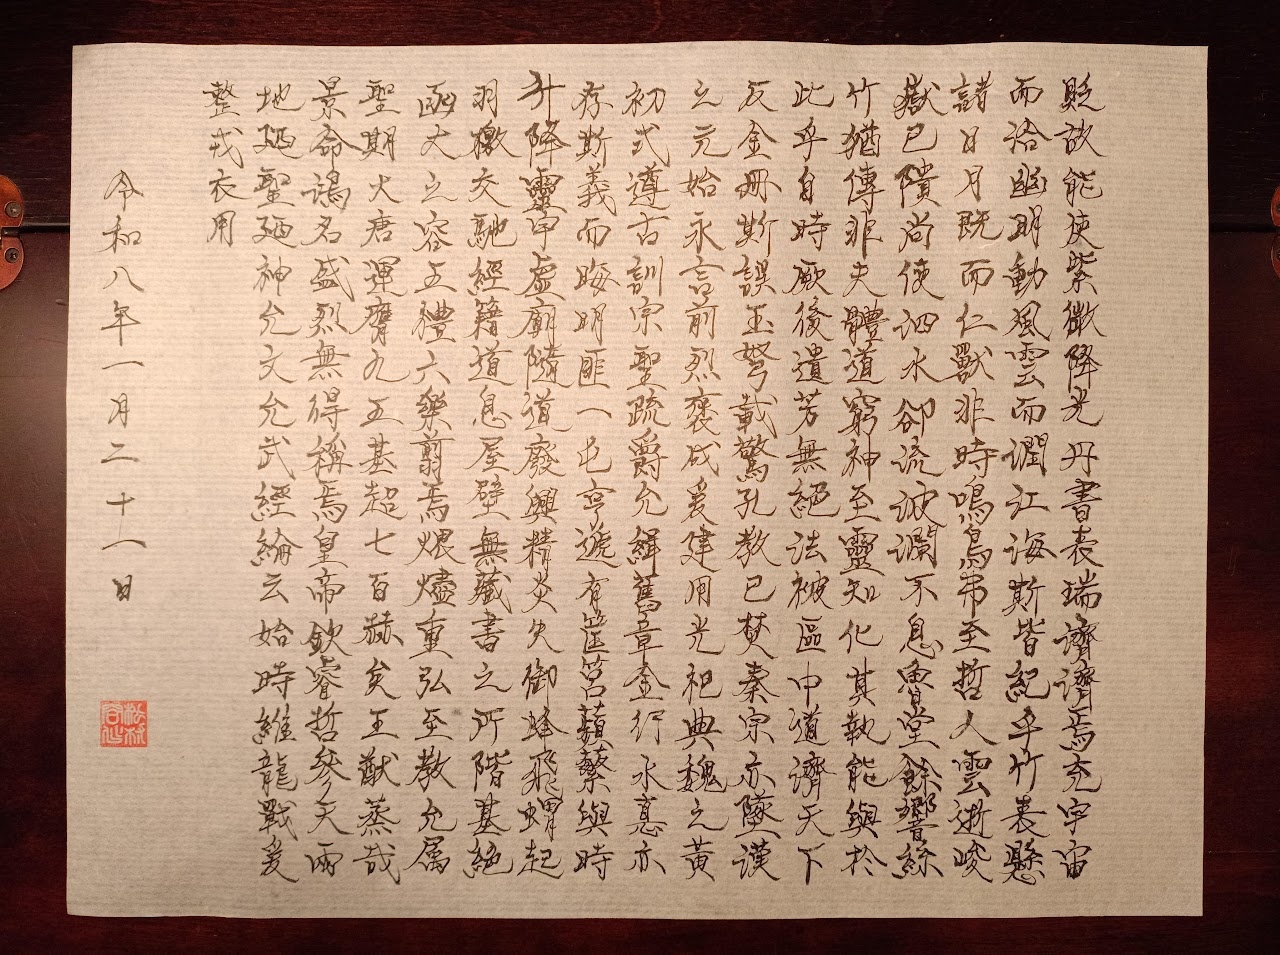 貶故能使紫微降光丹書表瑞濟濟焉充宇宙
而洽幽明動風雲而潤江海斯皆紀乎竹素懸
諸日月既而仁獸非時鳴鳥弗至哲人雲逝峻
嶽已隤尚使泗水卻流波瀾不息魯堂餘響絲
竹猶傳非夫體道窮神至靈知化其孰能與於
此乎自時厥後遺芳無絕法被區中道濟天下
及金冊斯誤玉弩載驚孔教已焚秦宗亦墜漢
之元始永言前烈褒成爰建用光祀典魏之黃
初式遵古訓宗聖疏爵允緝舊章金行水德亦
存斯義而晦明匪一屯亨遞有筐筥蘋蘩與時
升降靈宇虛廟隨道廢興精炎失御蜂飛蝟起
羽檄交馳經籍道息屋壁無藏書之所階基絕
函丈之容五禮六樂翦焉煨燼重弘至教允屬
聖期大唐運膺九五基超七百赫矣王猷蒸哉
景命鴻名盛烈無得稱焉皇帝欽睿哲參天兩
地廼聖廼神允文允武經綸云始時維龍戰爰
整戎衣用
令和八年一月二十八日